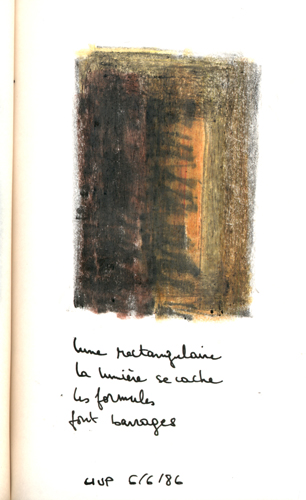 lune rectangulaire
la lumière se cache
les formules
font barrages
HUP 6/6/86